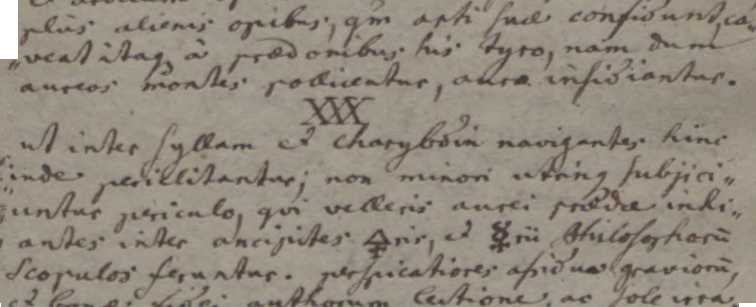 plus alienis opibus, qm arti suæ confidunt, ca„
„veat itaq, à prædonibus his tyro, nam dum
aureos montes pollicentur, auræ insidiantur.
XXX
ut inter syllam et charybdin navigantes hinc
inde periclitantur; non minori utrinq subjici„
untur periculo, qvi velleris aurei prædæ inhi„
antes inter ancipites 🜍ris, et ☿rii Philosophorū
Scopulos feruntur. perspicatiores assidua graviorū,
et bonæ fidei authorum lectione, ac